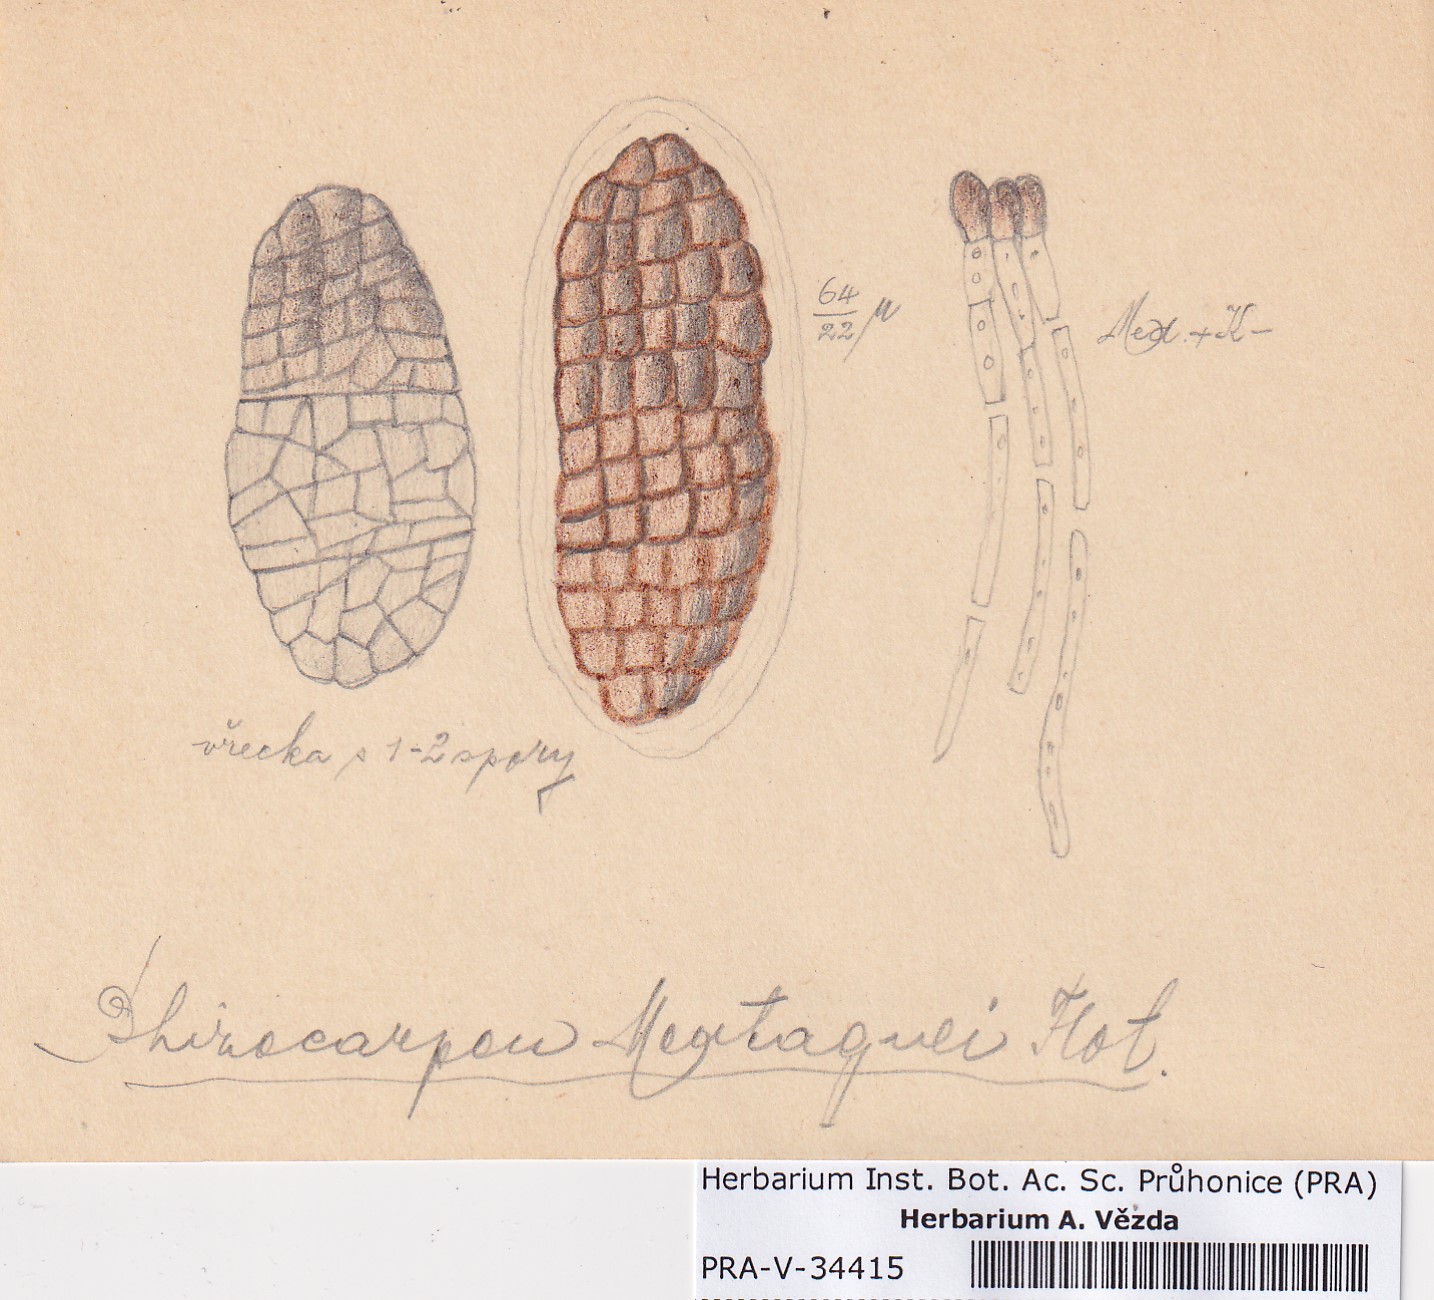 64
22 μ
Med. + K –
vřecka s 1-2 spóry
Rhizocarpon Montagnei Flot.
Herbarium Inst. Bot. Ac. Sc. Průhonice (PRA)
Herbarium A. Vězda
PRA-V-34415